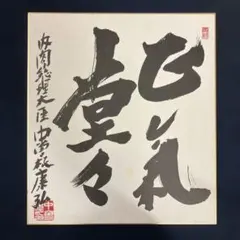 正気
堂々
内閣総理大臣 中曽根康弘